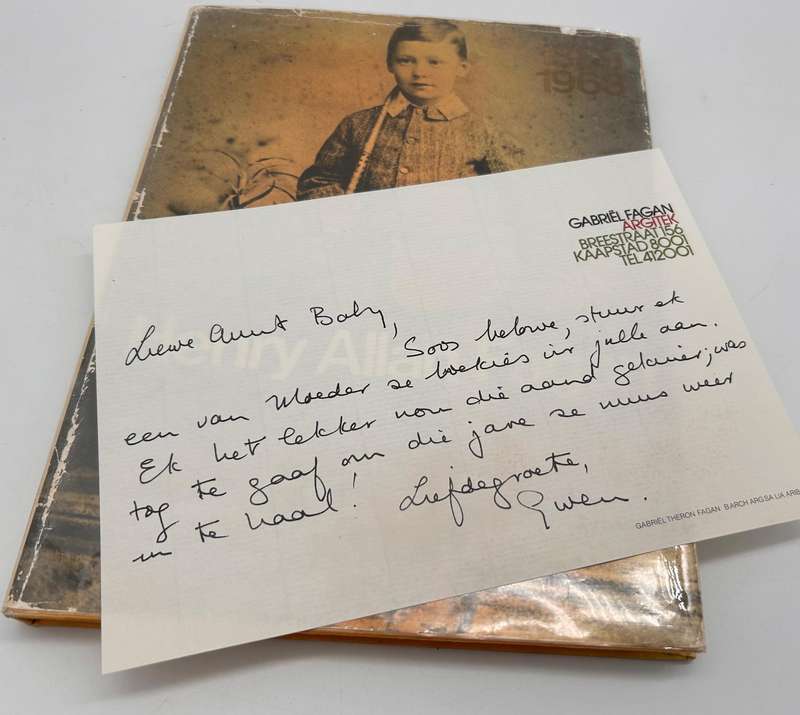 1963
GABRIËL FAGAN
ARGITEK
BREESTRAAT 156
KAAPSTAD 8001
TEL 412001
Henry Allan
Liewe Aunt Baby,
Soos belowe, stuur ek
een van Moeder se boekies vir julle aan.
Ek het lekker nou die aand gekuier; was
tog te gaaf om die jare se nuus weer
in te haal! Liefdegroete,
Gwen.
GABRIËL THERON FAGAN B ARCH ARG SA LIA ARIB